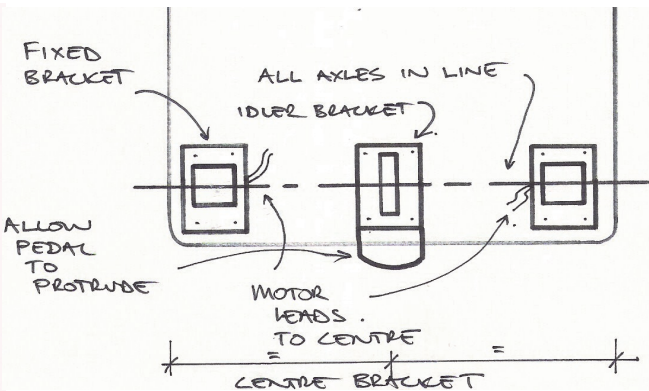 FIXED
BRACKET
ALL AXLES IN LINE
IDLER BRACKET
ALLOW
PEDAL
TO
PROTRUDE
MOTOR
LEADS.
TO CENTRE
= =
CENTRE BRACKET